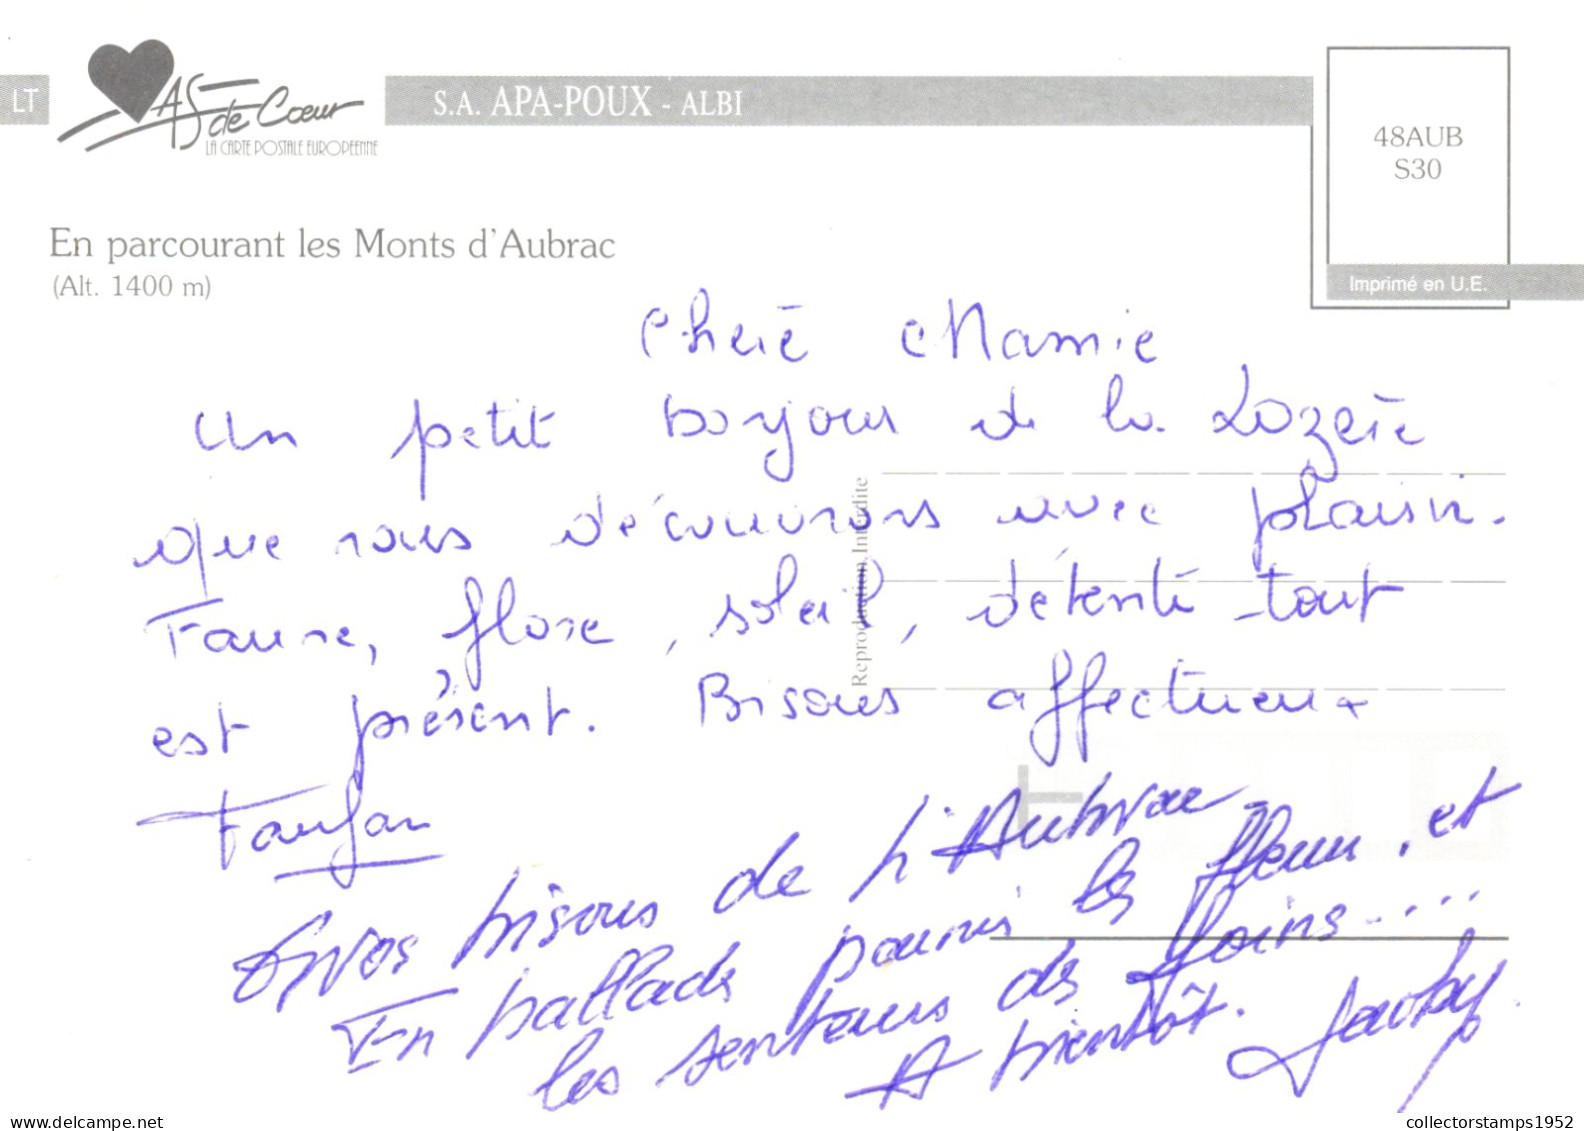 LT
AS de Cœur
LA CARTE POSTALE EUROPEENNE
S.A. APA-POUX - ALBI
48AUB
S30
Imprimé en U.E.
En parcourant les Monts d'Aubrac
(Alt. 1400 m)
Reproduction Interdite
Chère Mamie
Un petit bonjour de la Lozère
que nous découvrons avec plaisir.
Faune, flore, soleil, détente tout
est présent. Bisous affectueux
Gros bisous de l'Aubrac
En ballade parmi les fleurs, et
les senteurs des foins....
A bientôt.
collectorstamps1952